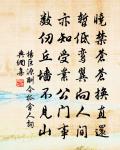 晓禁苍苍换直还
暂低鸾翼向人间
亦知受业公门事
数仞丘墙不见山
杨巨源酬令狐舍人诗
典网集